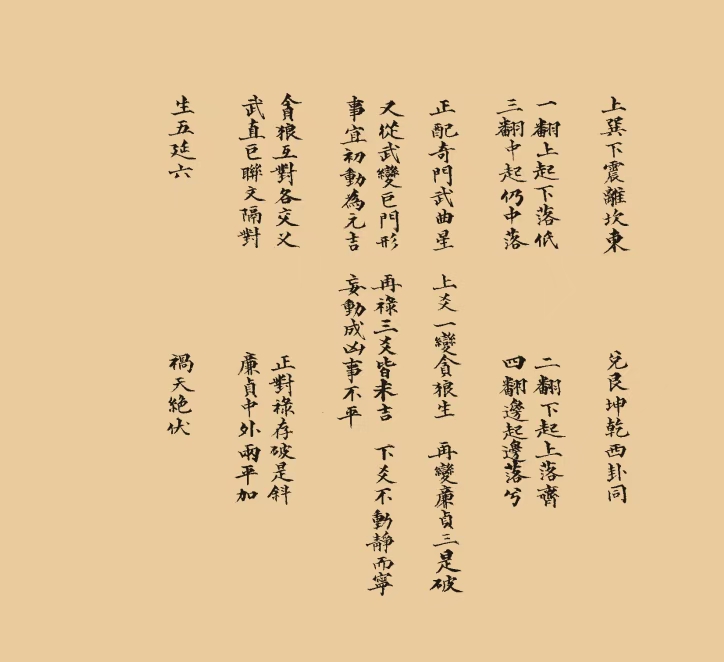 上巽下震離坎東　兌艮坤乾西卦同
一翻上起下落低　二翻下起上落齊
三翻中起仍中落　四翻邊起邊落兮
正配奇門武曲星　上爻一變貪狼生　再變廉貞三是破
又從武變巨門形　再祿三爻皆未吉　下爻不動靜而寧
事宜初動為元吉　妄動成凶事不平
貪狼互對各交父　正對祿存破是斜
武直巨聯交隔對　廉貞中外兩平加
生五延六　禍天絕伏